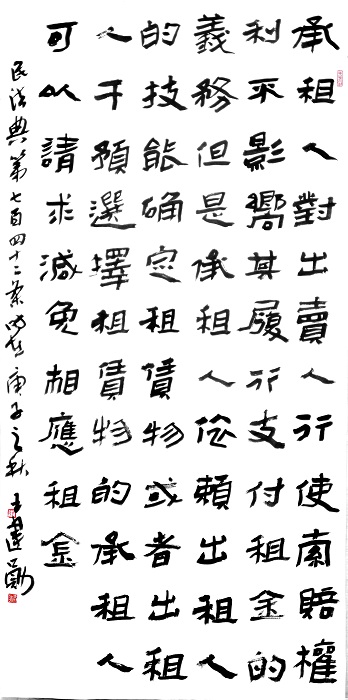 承租人對出賣人行使索賠權
利不影響其履行支付租金的
義務但是承租人依賴出租人
的技能确定租賃物或者出租
人干預選擇租賃物的承租人
可以請求減免相應租金
民法典第七百四十二条时在庚子之秋